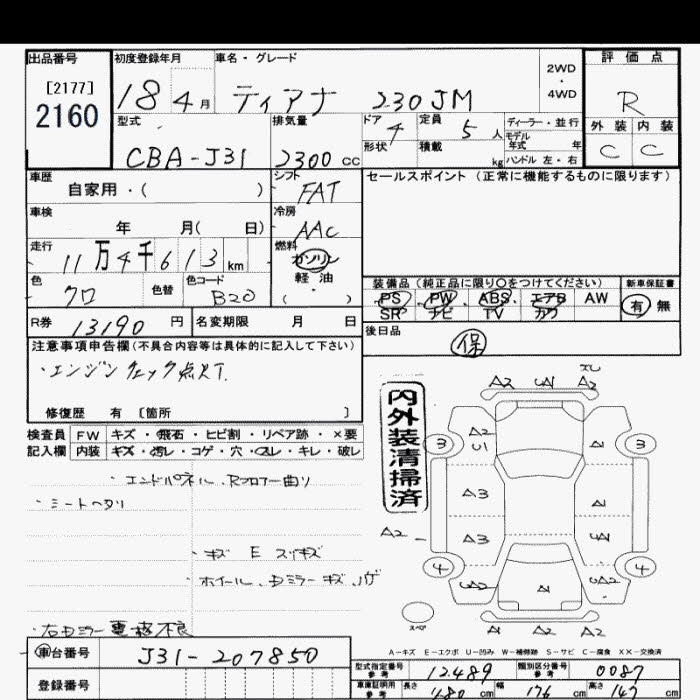 出品番号 初度登録年月 車名・グレード 2WD ・ 4WD 評価点
[2177] 2160 18 4月 ティアナ 230JM R
型式 排気量 ドア 4 定員 5人 ディーラー・並行 外装 内装
CBA-J31 2300cc 形状 積載 kg モデル年式 年 ハンドル 左・右 C C
車歴 自家用・( ) シフト FAT セールスポイント (正常に機能するものに限ります)
車検 年 月( 日) 冷房 AAC
走行 11万4千613km 燃料 ガソリン 軽・油 ( )
色 クロ 色替 色コード B20 装備品 (純正品に限り○をつけてください) 新車保証書
PS PW ABS エアB AW 有 無
SR ナビ TV カワ
R券 13190円 名変期限 月 日 後日品 保
注意事項申告欄(不具合内容等は具体的に記入して下さい)
・エンジンチェック点灯.
修復歴 有 [箇所 ]
内外装清掃済
検査員 FW キズ・飛石・ヒビ割・リペア跡・×要
記入欄 内装 キズ・汚レ・コゲ・穴・スレ・キレ・破レ
・エンドパネル、Rフロアー曲り
・シートヘタリ
・キズ E スリキズ
・ホイール、Dミラーキズ、ハゲ
・右Dミラー電格不良
A2 A2
3 A2 U1 A1 3
A3 A1
A2 A3
4 A1 4
スペア A1 A2 A2
A-キズ E-エクボ U-凹み W-補修跡 S-サビ C-腐食 XX-交換済
車台番号 J31-207850 型式指定番号 参考 12489 類別区分番号 参考 0087
登録番号 車庫証明用 参考 長さ 480cm 幅 176cm 高さ 147cm